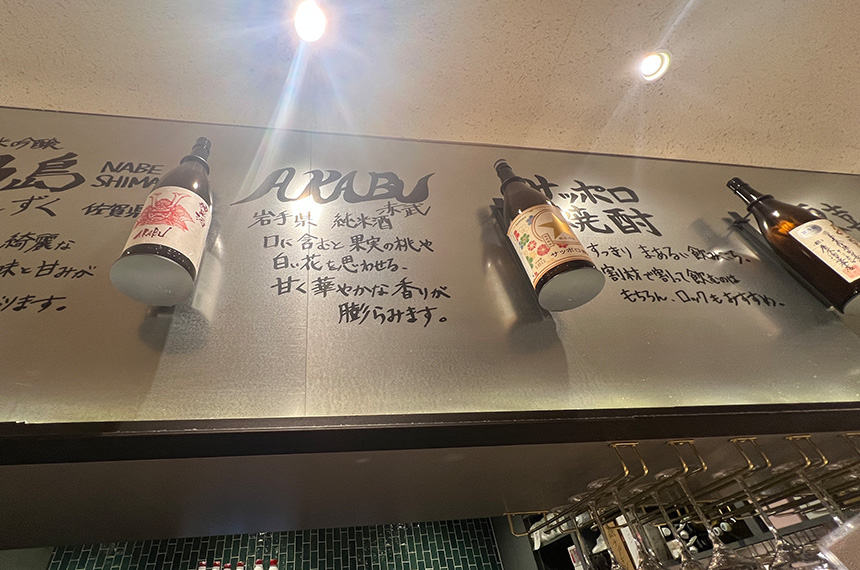 吟醸
島 NABE
SHIMA
しずく 佐賀県
綺麗な
味と甘みが
ります。
ARABU
ARABU
岩手県 純米酒 赤武
口に含むと果実の桃や
白い花を思わせる、
甘く華やかな香りが
膨らみます。
サッポロ
サッポロ
焼酎
すっきり まあるい飲みごこち。
割材で割って飲むのは
もちろん、ロックもおすすめ。